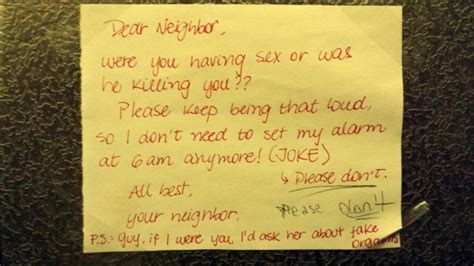 Dear Neighbor,
were you having sex or was
he killing you??
Please keep being that loud,
so I don't need to set my alarm
at 6am anymore! (JOKE)
↳ Please don't.
All best,
Please don't
your neighbor.
P.S.: Guy, if I were you I'd ask her about fake
orgasms